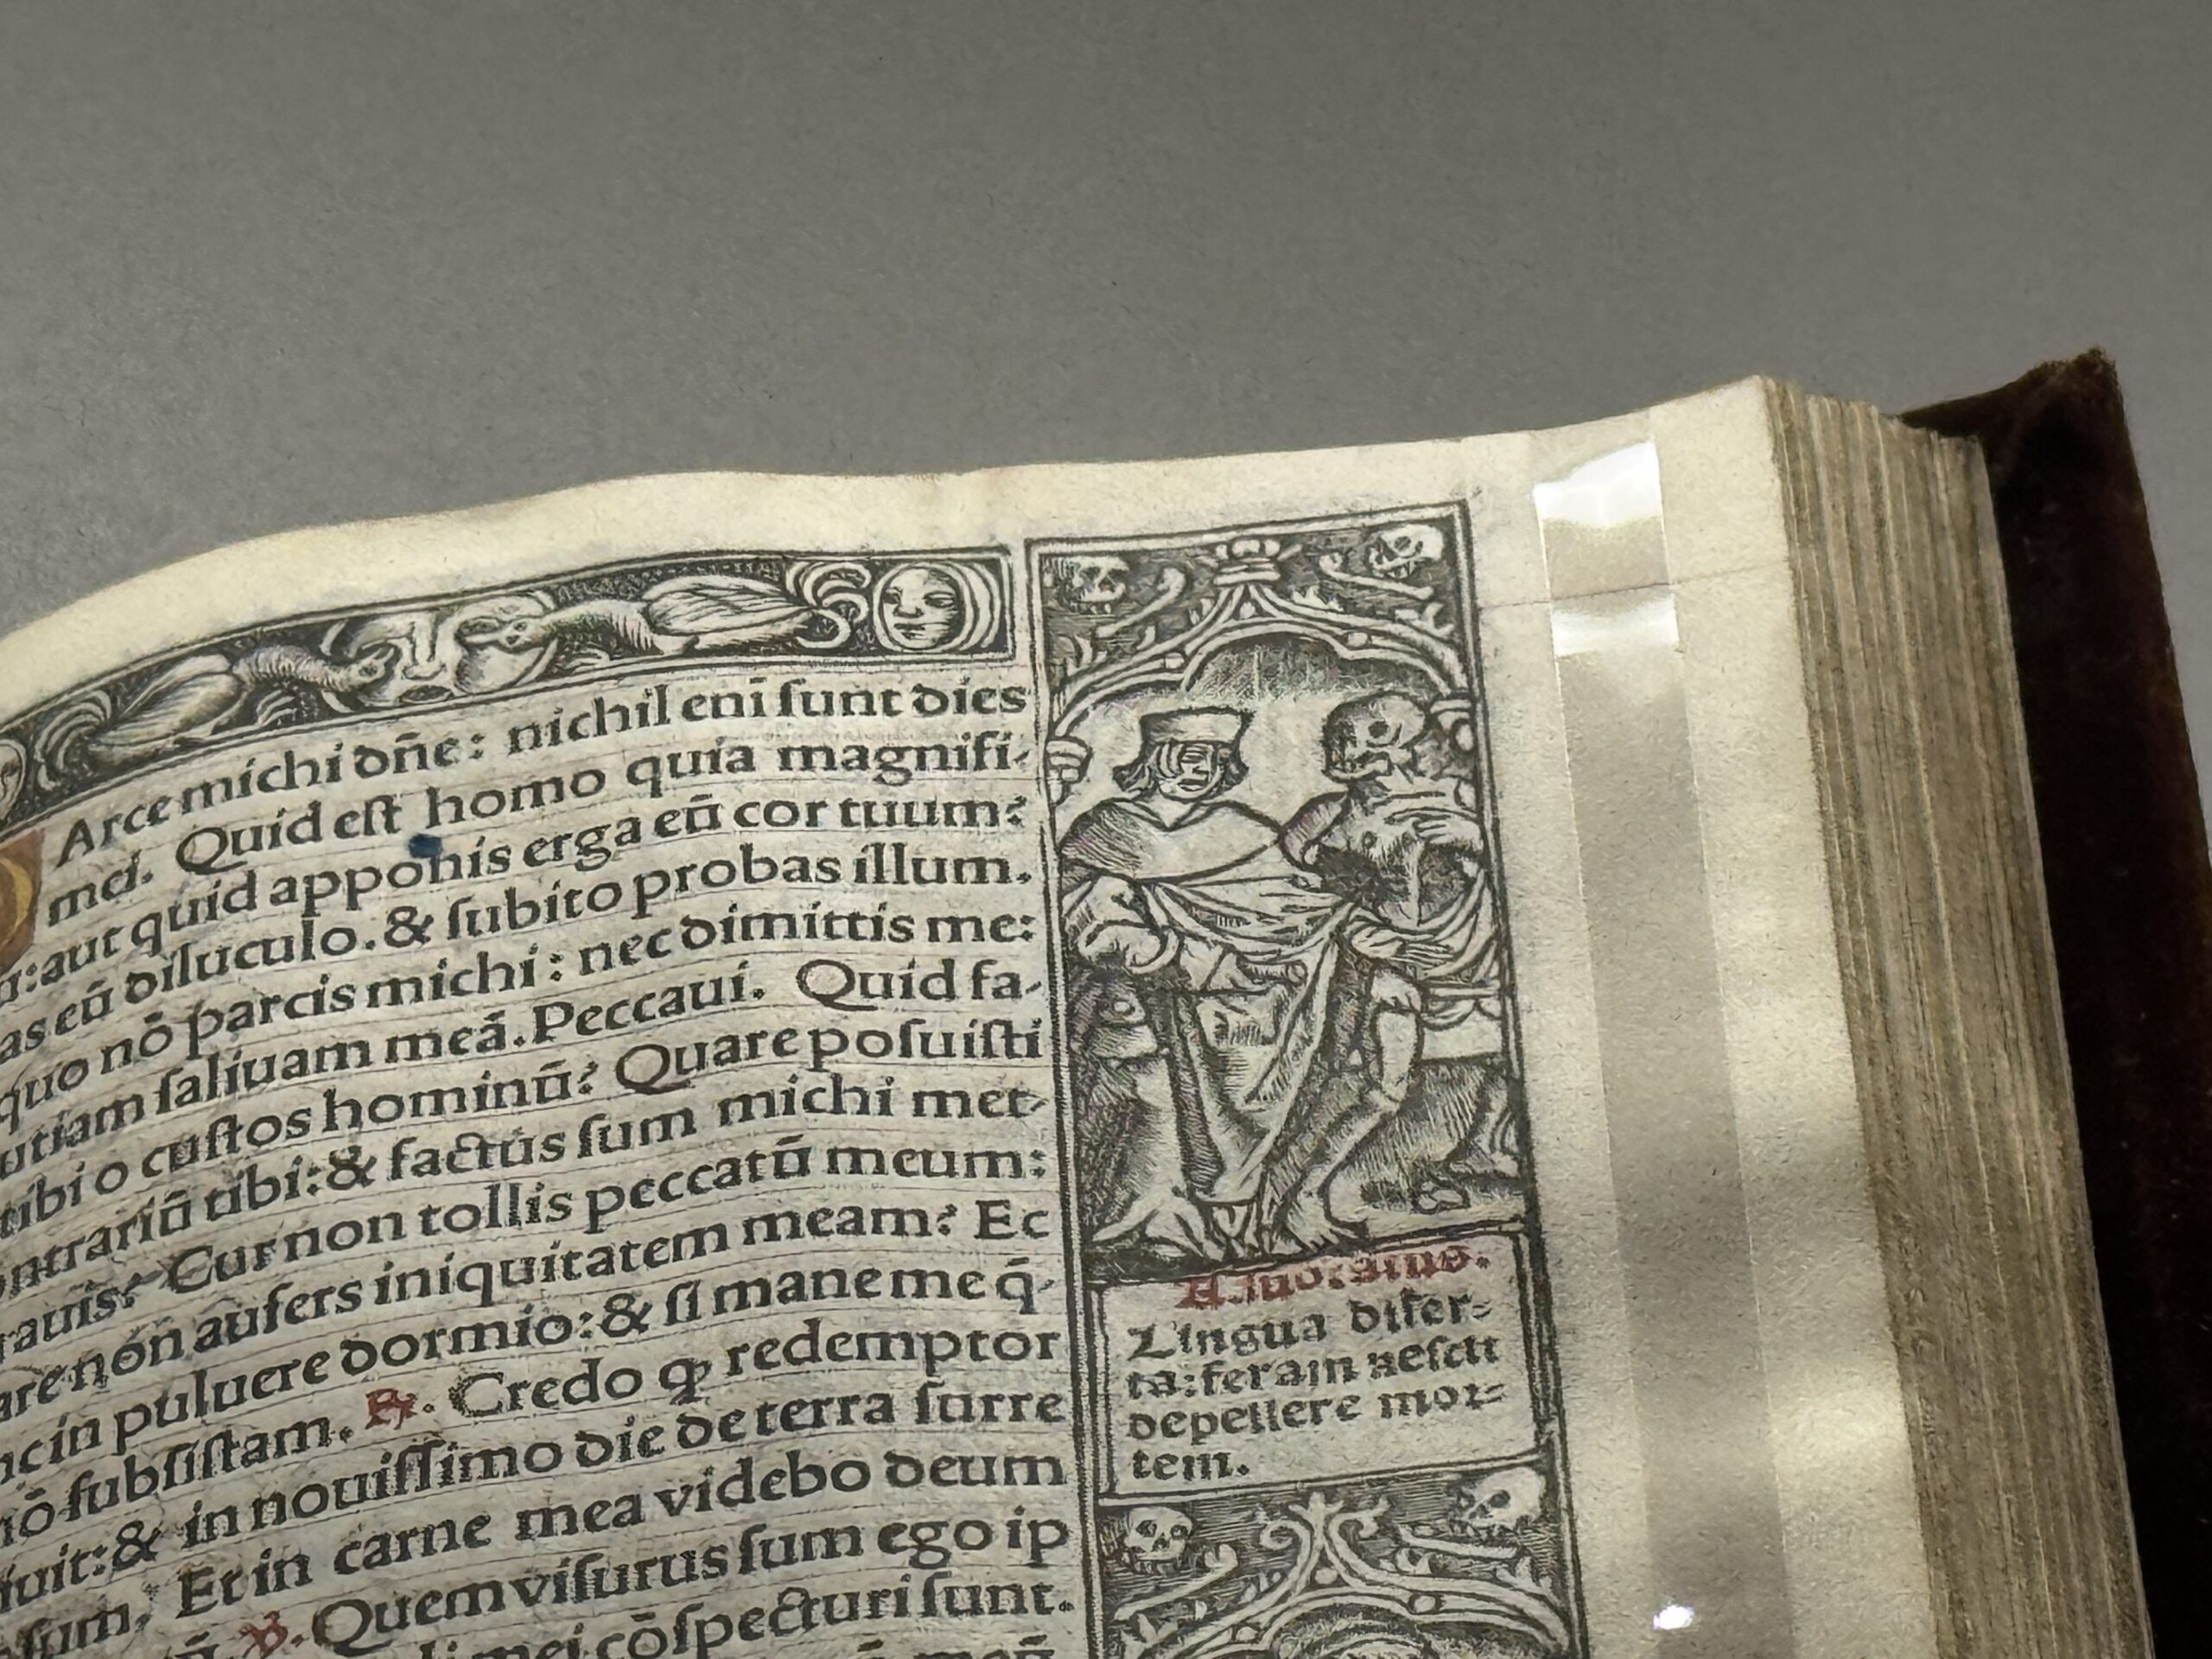 Arce michi dñe: nichil enī ſunt dies
mei. Quid eſt homo quia magnifi-
aut quid apponis erga eū cor tuum:
as eū diluculo. & ſubito probas illum.
quo nō parcis michi: nec dimittis me:
utiam ſaliuam meā. Peccaui. Quid fa-
tibi o cuſtos hominū? Quare poſuiſti
ontrariū tibi: & factus ſum michi met-
rauis? Cur non tollis peccatū meum:
are non aufers iniquitatem meam? Ec
nc in puluere dormio: & ſi mane me q̄-
nō ſubſiſtam. ℟. Credo ꝙ redemptor
iuit: & in nouiſſimo die de terra ſurre
ſum. Et in carne mea videbo deum
℣. Quem viſurus ſum ego ip
li mei cōſpecturi ſunt.
meū
Lingua diſer-
ta: feram neſcit
depellere mor-
tem.